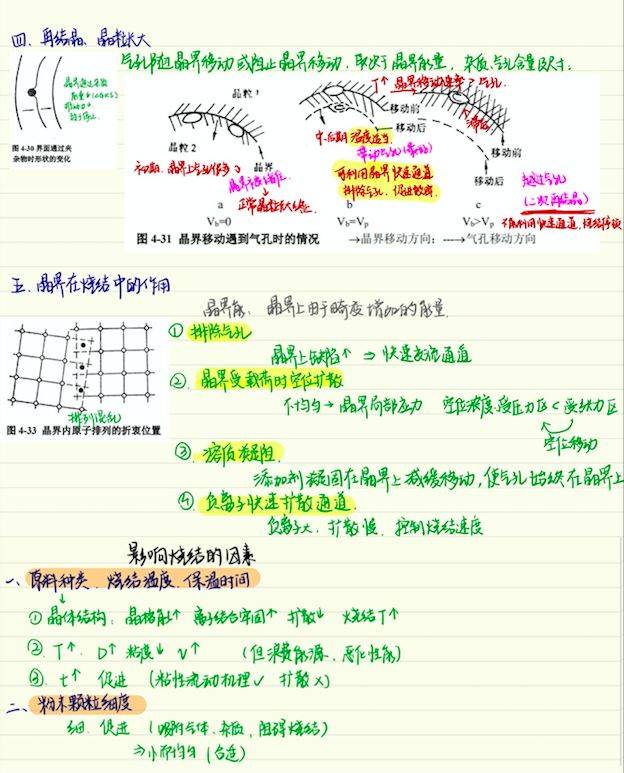 四、再结晶、晶粒长大
气孔随晶界移动或阻止晶界移动,取决于晶界能量,杂质、气孔含量及尺寸:
图 4-30 界面通过夹
杂物时形状的变化
晶粒1
晶粒2
晶界
初期,晶界上气孔
正常晶粒长大
a
V_b=0
T↑ 晶界移动速率>气孔
移动前
移动后
中、后期 温度适当
带动气孔
可利用晶界快速通道
排除气孔,促进致密
b
V_b=V_p
移动前
移动后
越过气孔
(二次再结晶)
不能利用快速通道,
c
V_b>V_p
图 4-31 晶界移动遇到气孔时的情况 →晶界移动方向; ---→气孔移动方向
五、晶界在烧结中的作用
晶界能:晶界上由于畸变增加的能量.
排列混乱
图 4-33 晶界内原子排列的折衷位置
① 排除气孔
晶界上缺陷↑ ⇒ 快速交流通道
②. 晶界受载荷时空位扩散
不均匀→晶界局部应力 空位浓度:受压力区<受张力区
空位移动
③. 溶质凝阻
添加剂凝固在晶界上减缓移动,使气孔始终在晶界上
④ 负离子快速扩散通道.
负离子大,扩散慢,控制烧结速度
影响烧结的因素
一、原料种类、烧结温度、保温时间
①晶体结构:晶格能↑ 离子结合牢固↑ 扩散↓ 烧结T↑
②. T↑ D↑ 粘度↓ v↑ (但浪费能源、恶化性能)
③. t↑ 促进 (粘性流动机理✓ 扩散×)
二、粉末颗粒细度
细:促进 (吸附气体、杂质,阻碍烧结)
⇒小而均匀 (合适)